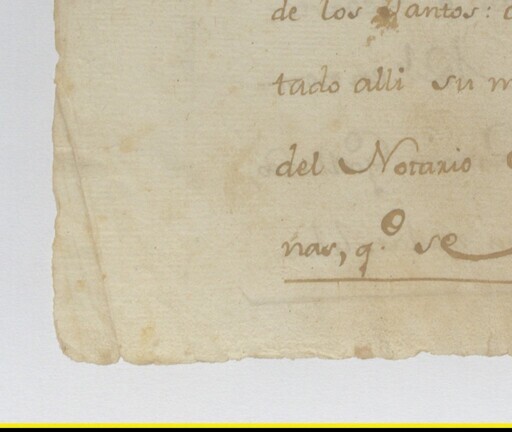 de los Santos:
tado alli su
del Notario
nas, q.e se